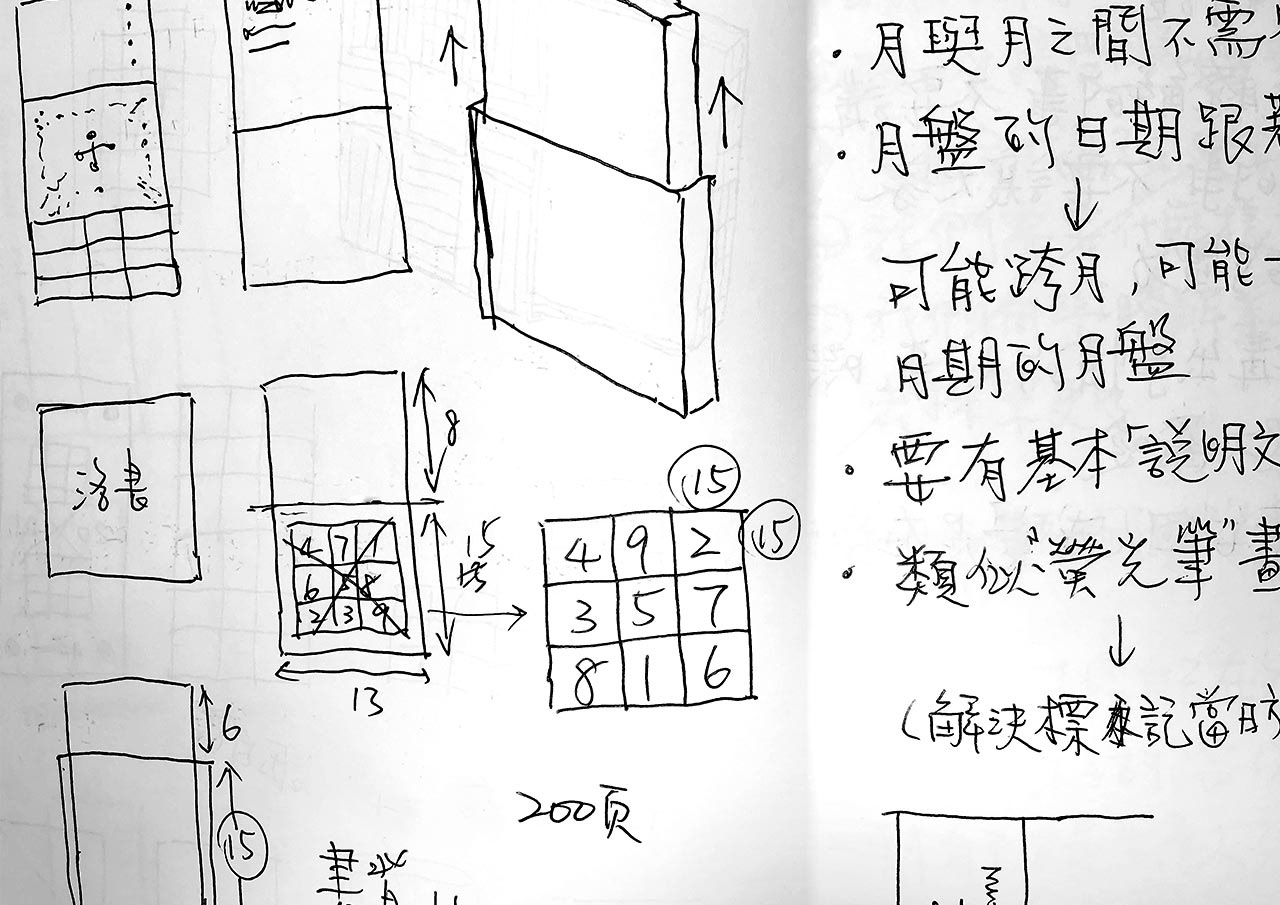 8
洛書
4 7 1
6 5 8
2 3 9
15
13
15
15
4 9 2
3 5 7
8 1 6
6
15
200页
・月與月之間不需
・月盤的日期跟著
可能跨月,可能一
月期的月盤
・要有基本「說明文
・類似"螢光筆"畫
(解決標記當時